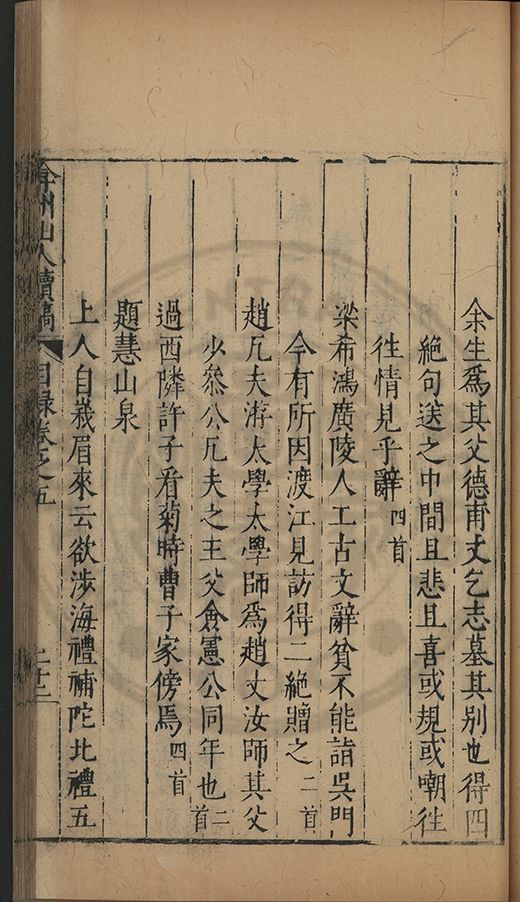 余生爲其父德甫丈乞志墓其别也得四
絶句送之中間且悲且喜或規或嘲徃
徃情見乎辭四首
梁希鴻廣陵人工古文辭貧不能詣吳門
今有所因渡江見訪得二絶贈之二首
趙凡夫游太學太學師爲趙丈汝師其父
少參公凡夫之王父僉憲公同年也二首
過西隣許子看菊時曹子家傍焉四首
題慧山泉
上人自峩眉來云欲涉海禮補陀北禮五
弇州山人續稿 目録卷之五 二十二